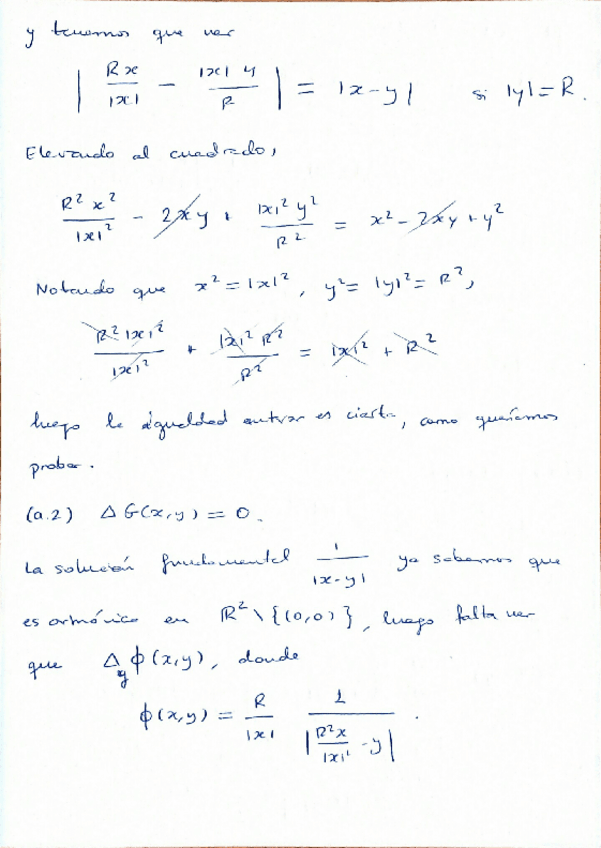 y tenemos que ver
| Rx/|x| - |x| y/R | = |x-y| si |y| = R.
Elevando al cuadrado,
R² x²/|x|² - 2xy + |x|² y²/R² = x² - 2xy + y²
Notando que x² = |x|², y² = |y|² = R²,
R² |x|²/|x|² + |x|² R²/R² = |x|² + R²
luego la igualdad anterior es cierta, como queríamos
probar.
(a.2) Δ G(x,y) = 0.
La solución fundamental 1/|x-y| ya sabemos que
es armónica en R² \ {(0,0)}, luego falta ver
que Δ_y ϕ(x,y), donde
ϕ(x,y) = R/|x| 1/|R²x/|x|² - y| .